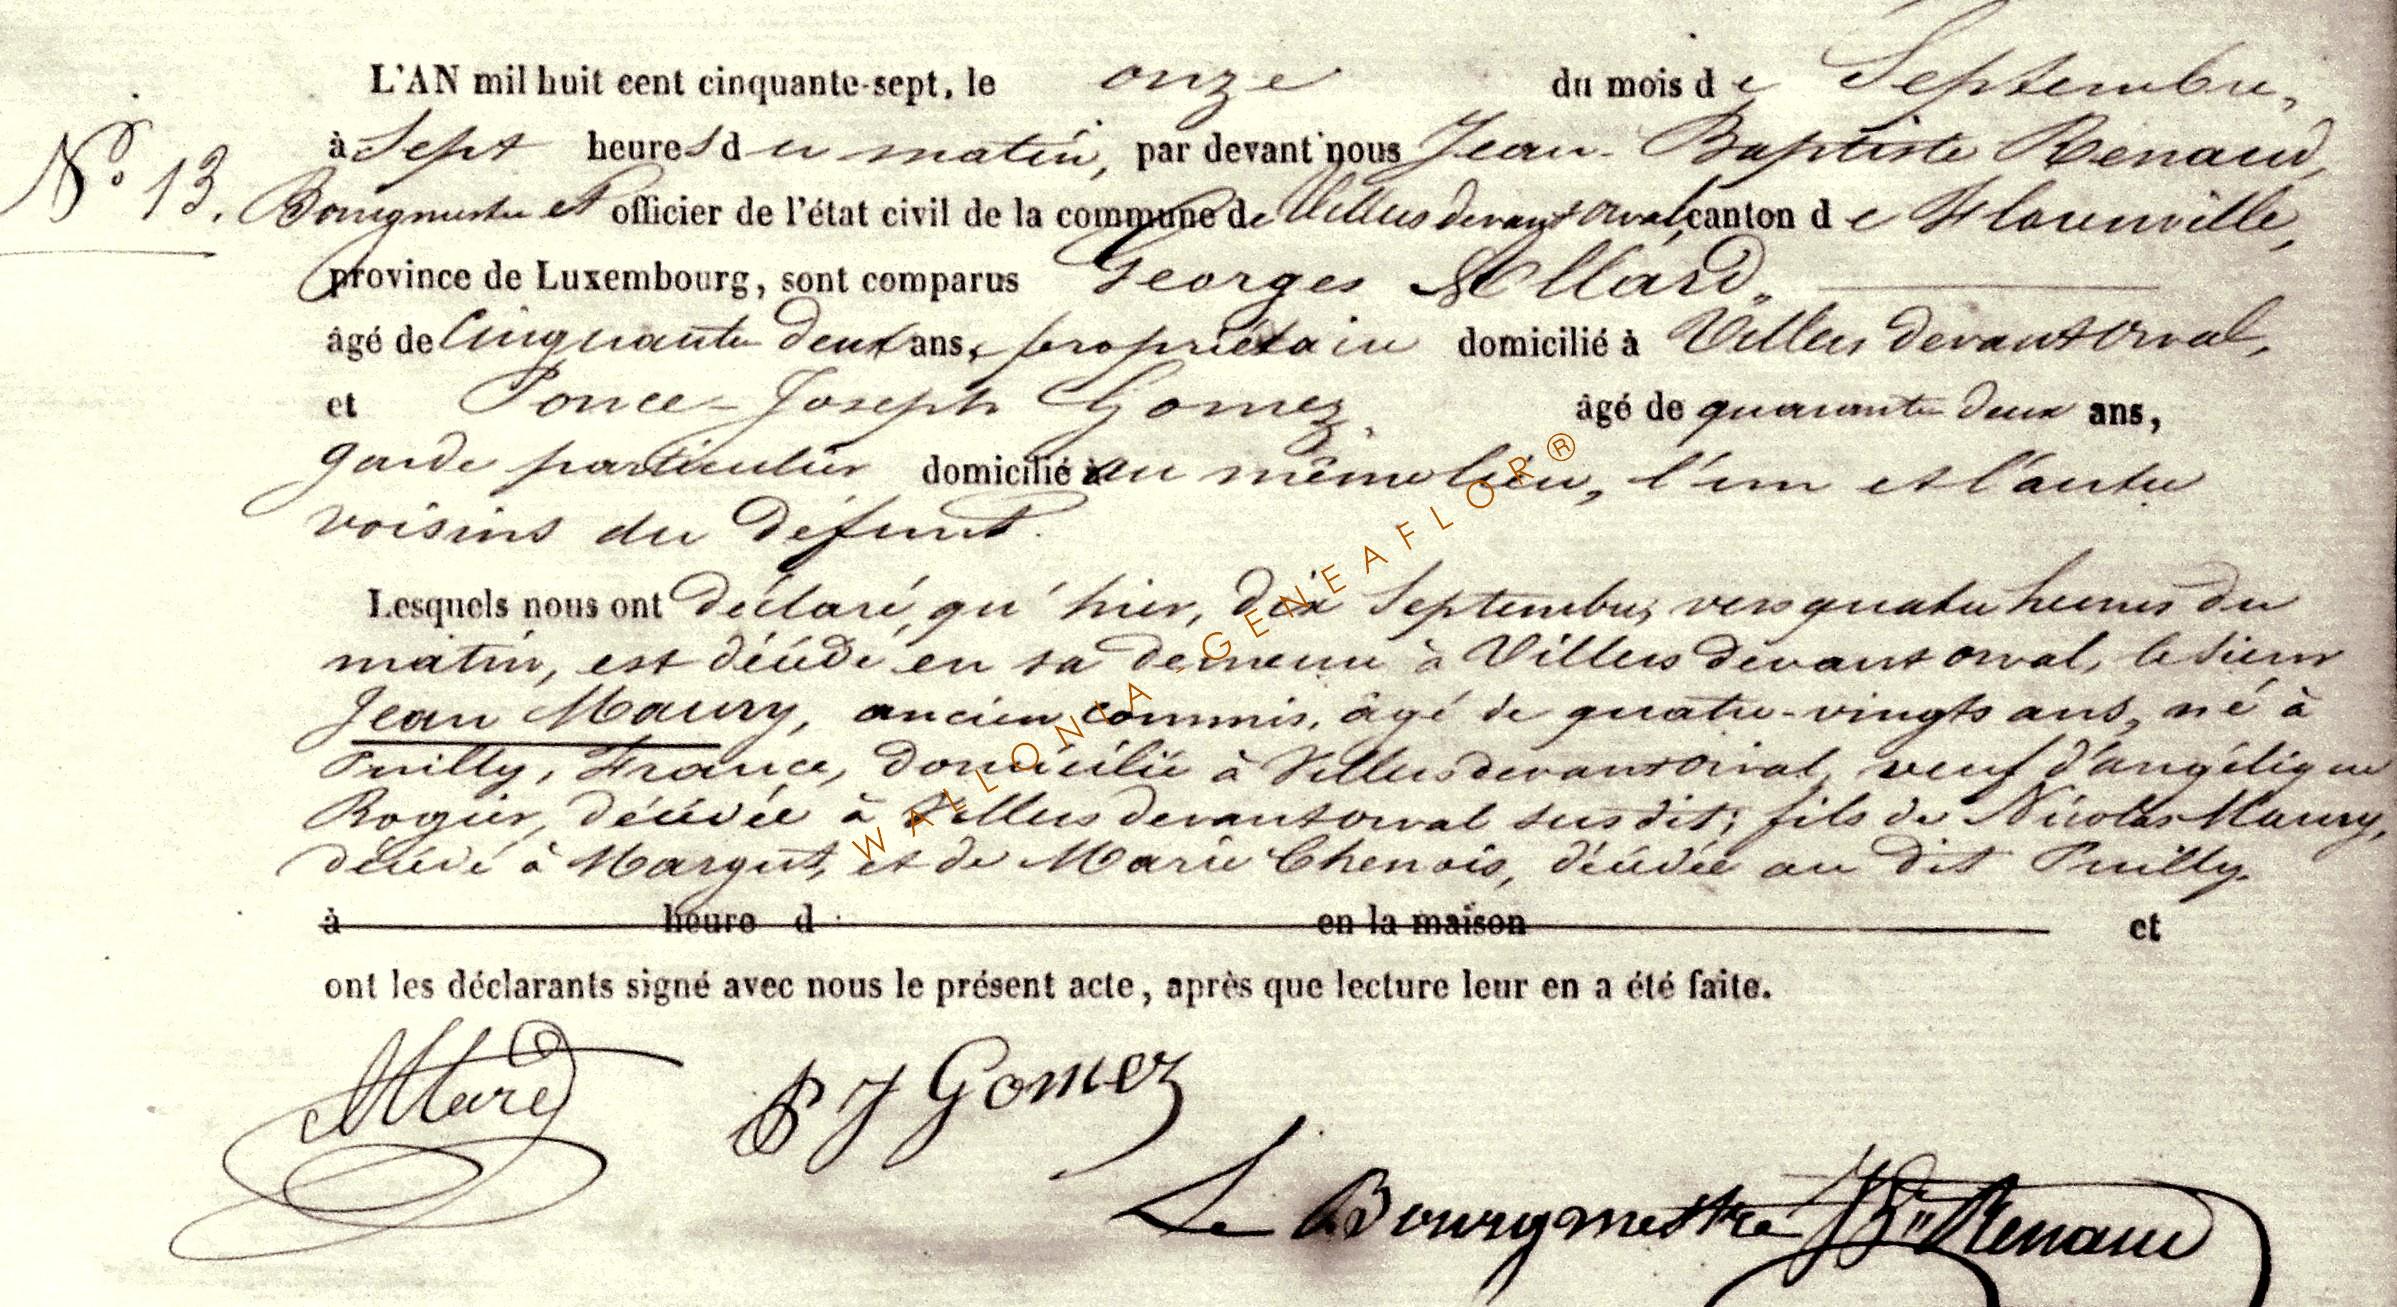 L'AN mil huit cent cinquante-sept, le onze du mois de Septembre,
à Sept heures du matin, par devant nous Jean-Baptiste Renaud,
N° 13. Bourgmestre et officier de l'état civil de la commune de Villers devant Orval, canton de Florenville,
province de Luxembourg, sont comparus Georges Allard,
âgé de Cinquante deux ans, propriétaire domicilié à Villers devant Orval,
et Ponce-Joseph Gomez, âgé de quarante deux ans,
garde particulier domicilié au même lieu, l'un et l'autre
voisins du défunt.
Lesquels nous ont déclaré, qu'hier, dix Septembre, vers quatre heures du
matin, est décédé en sa demeure à Villers devant orval, le sieur
Jean Maury, ancien commis, âgé de quatre-vingts ans, né à
Puilly, France, domicilié à Villers devant Orval, veuf d'angélique
Rogier, décédée à Villers devant orval susdit; fils de Nicolas Maury,
décédé à Margut, et de Marie Chenois, décédée au dit Puilly.
à heure d en la maison et
ont les déclarants signé avec nous le présent acte, après que lecture leur en a été faite.
Allard P J Gomez
Le Bourgmestre JBte Renaud
WALLONIA GENEAFLOR ®